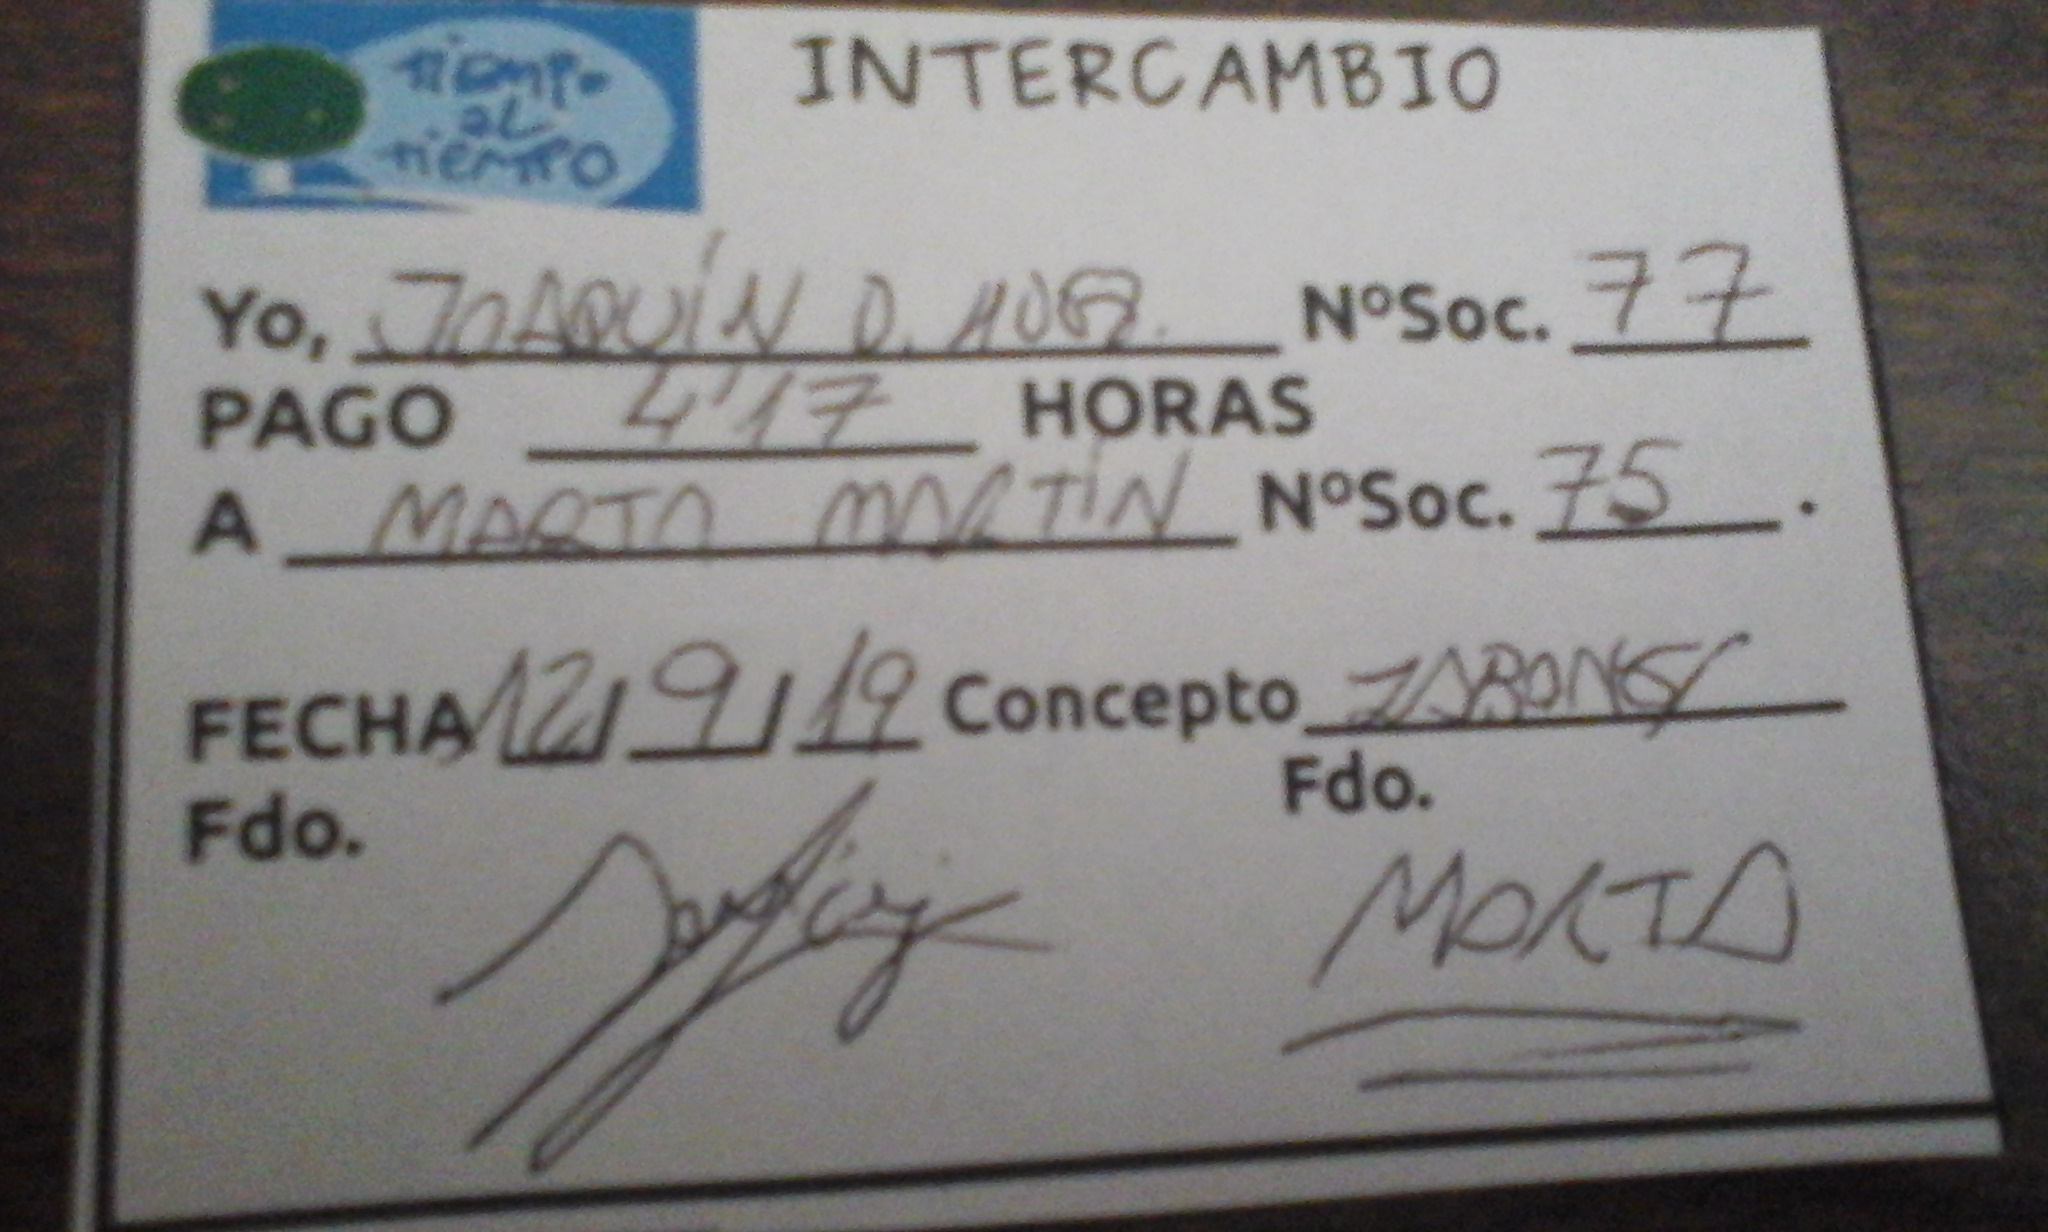 TIEMPO
AL
TIEMPO
INTERCAMBIO
Yo, JOAQUÍN D. NºSoc. 77
PAGO 4'17 HORAS
A MARTA MARTÍN NºSoc. 75.
FECHA 12/9/19 Concepto JABONES
Fdo. Fdo.
MARTA